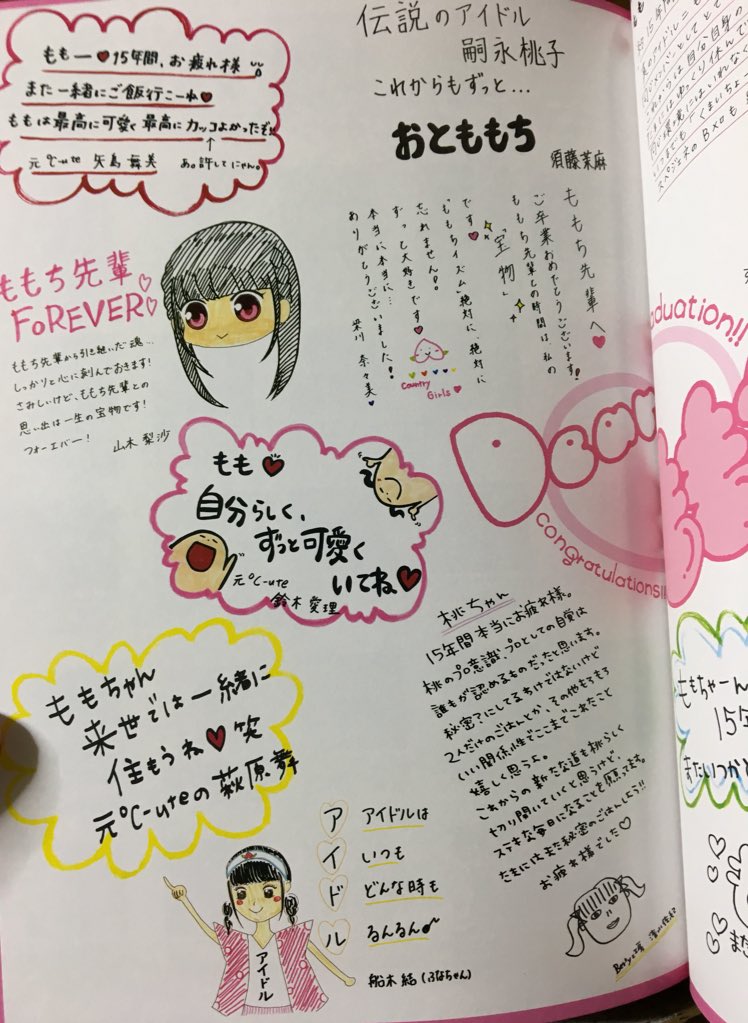 もも一♥15年間、お疲れ様
また一緒にご飯行こーね♥
ももは最高に可愛く最高にカッコよかったぞ!!
元℃-ute 矢島舞美
あ。許してにゃん。
伝説のアイドル
嗣永桃子
これからもずっと…
おとももち
須藤茉麻
ももち先輩へ♥
ご卒業おめでとうございます!
ももち先輩との時間は、私の
"宝物"
です♥
ももちイズム絶対に、絶対に
忘れません!
ずっと大好きです♥
本当に本当に…
ありがとうございました!
梁川 奈々美♥
Country Girls♥
ももち先輩♡
FoREVER♡
ももち先輩から引き継いだ魂…
しっかりと心に刻んでおきます!
さみしいけど、ももち先輩との
思い出は一生の宝物です!
フォーエバー!
山木梨沙
もも♥
自分らしく、
ずっと可愛く
いてね♥
元℃-ute
鈴木愛理
Dear
graduation!!
congratulations!!
ももちゃん
来世では一緒に
住もうね♥笑
元℃-uteの萩原舞
桃ちゃん
15年間本当にお疲れ様。
桃のプロ意識、プロとしての自覚は
誰もが認めるものだったと思います。
秘密?にしてるわけではないけど
2人だけのごはんとか、その他もろもろ
いい関係性でここまでこれたこと
嬉しく思うよ。
これからの新たな道も桃らしく
切り開いていくと思うけど、
ステキな毎日になることを願ってます。
たまにはまた秘密のごはんしよう!!
お疲れ様でした♡
Berryz工房 清水佐紀
ア アイドルは
イ いつも
ド どんな時も
ル るんるん♪
アイドル
船木結(ふなちゃん)
ももちゃーん
15年
またいつか
また